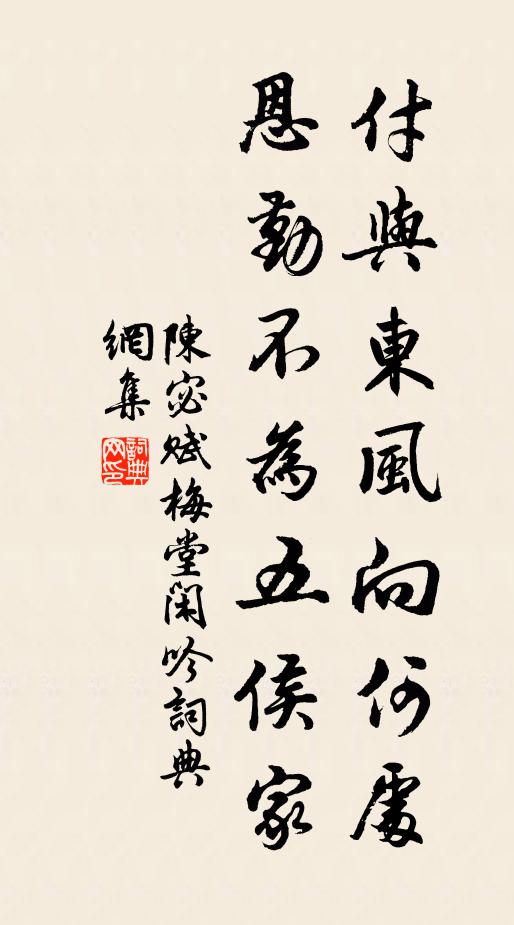 付與東風向何處
恩勤不為五侯家
陳宓賦梅堂閑吟詞典
網集
詞典网印